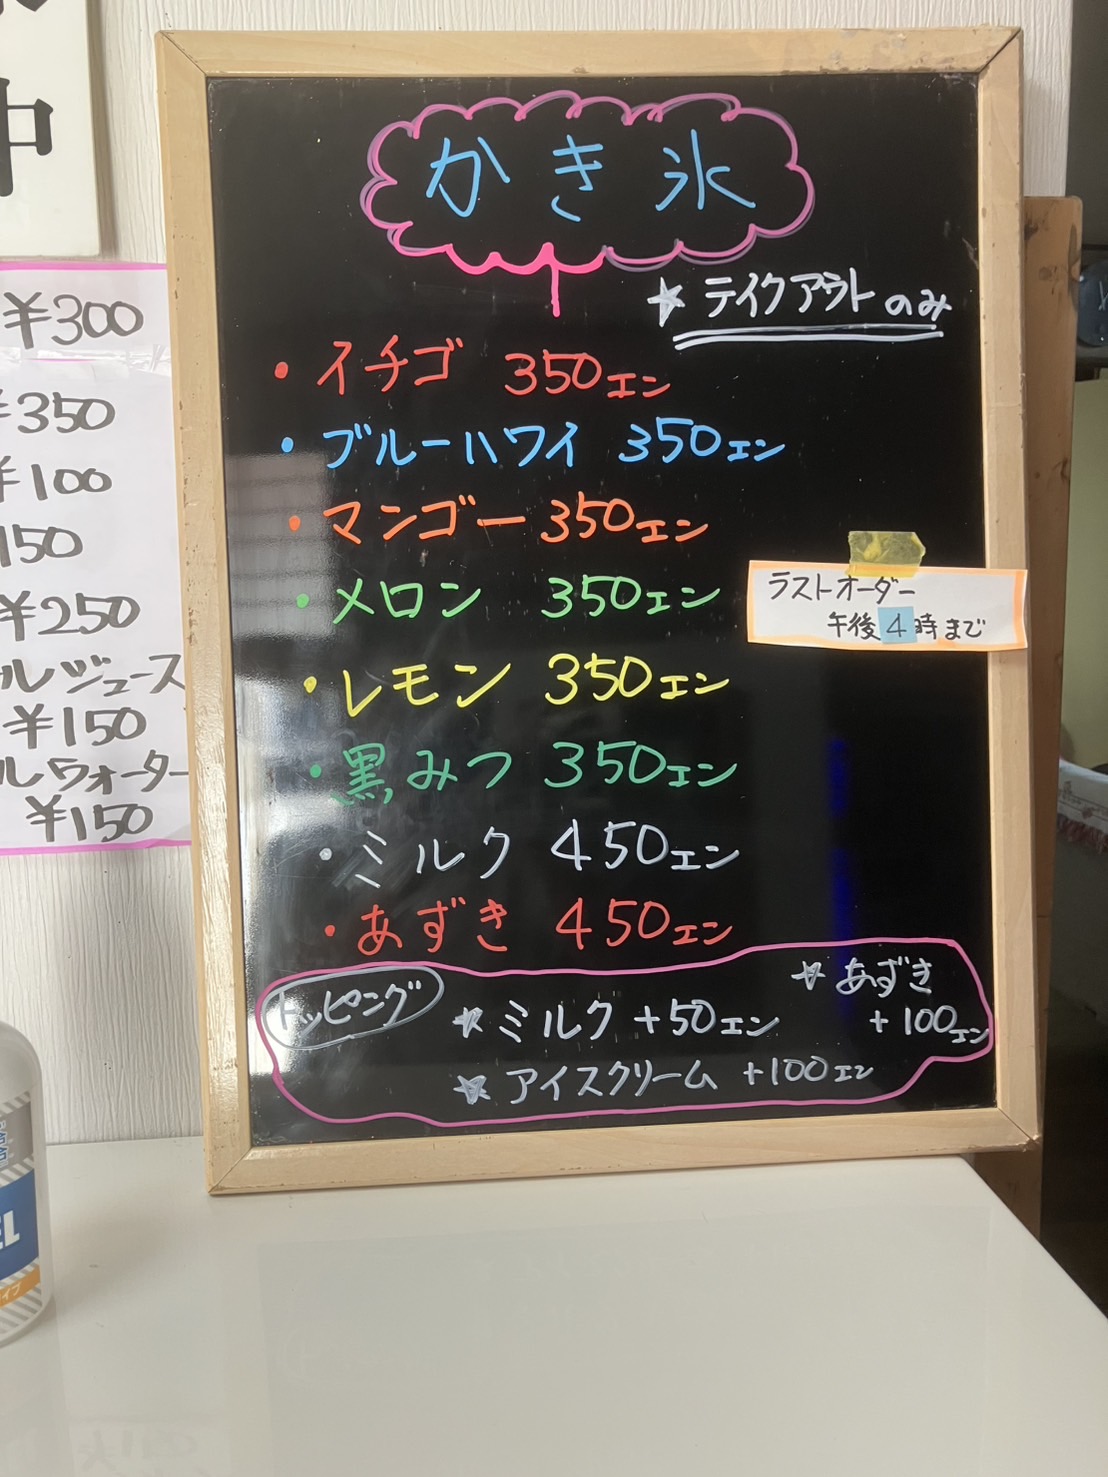 中
¥300
¥350
¥100
150
¥250
ルジュース
¥150
ルウォーター
¥150
かき氷
★テイクアウトのみ
・イチゴ 350エン
・ブルーハワイ 350エン
・マンゴー 350エン
・メロン 350エン
ラストオーダー
午後4時まで
・レモン 350エン
・黒みつ 350エン
・ミルク 450エン
・あずき 450エン
トッピング
★ミルク +50エン
★あずき
+100エン
★アイスクリーム +100エン